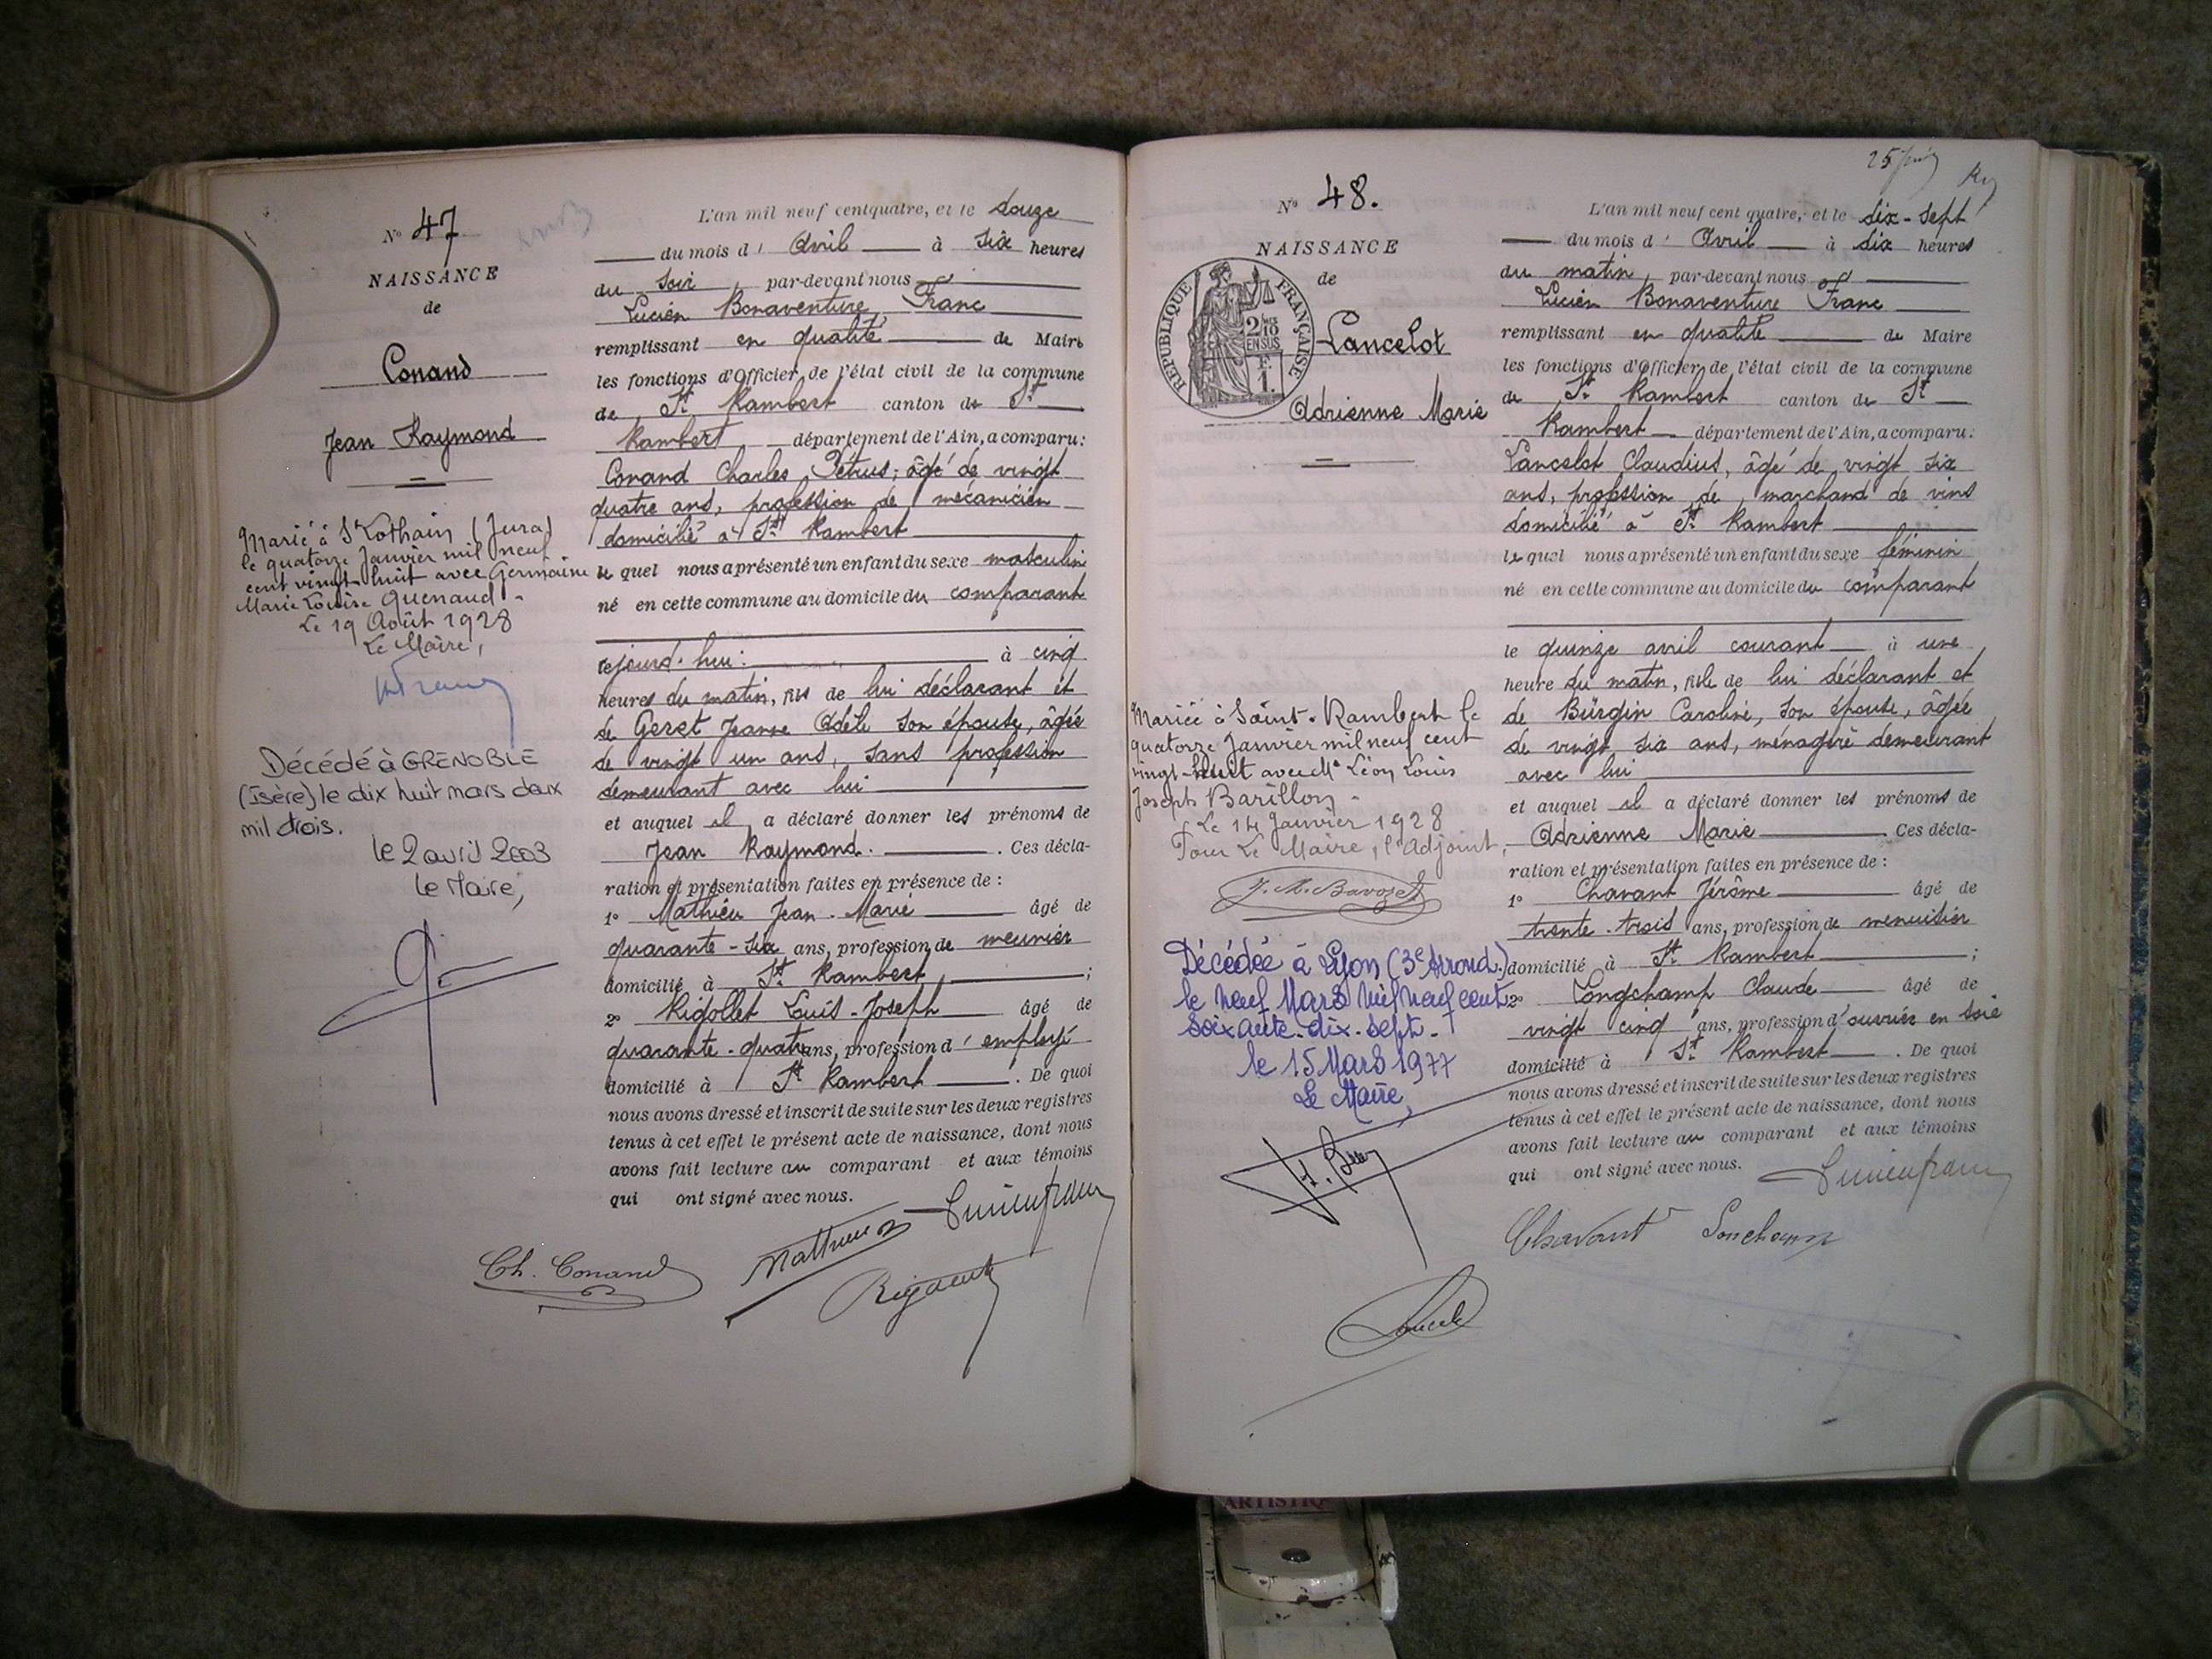 Nº 47
NAISSANCE
de
Conand
Jean Raymond
Marié à St Lothain (Jura)
le quatorze Janvier mil neuf
cent vingt-huit avec Germaine
Marie Louise Guenaud -
Le 19 Août 1928
Le Maire,
Décédé à GRENOBLE
(Isère) le dix huit mars deux
mil trois.
le 2 avril 2003
le Maire,
L'an mil neuf cent quatre, et le douze
du mois d' Avril à six heures
du soir, par-devant nous
Lucien Bonaventure Franc
remplissant en qualité de Maire
les fonctions d'Officier de l'état civil de la commune
de St Rambert canton de St
Rambert département de l'Ain, a comparu:
Conand Charles Pétrus, âgé de vingt
quatre ans, profession de mécanicien
domicilié à St Rambert
le quel nous a présenté un enfant du sexe masculin
né en cette commune au domicile du comparant
cejourd'hui: à cinq
heures du matin, fils de lui déclarant et
de Geret Jeanne Adèle son épouse, âgée
de vingt un ans, sans profession
demeurant avec lui
et auquel il a déclaré donner les prénoms de
Jean Raymond. . Ces décla-
ration et présentation faites en présence de :
1º Mathieu Jean-Marie âgé de
quarante-six ans, profession de meunier
domicilié à St Rambert ;
2º Rigollet Louis-Joseph âgé de
quarante-quatre ans, profession d'employé
domicilié à St Rambert . De quoi
nous avons dressé et inscrit de suite sur les deux registres
tenus à cet effet le présent acte de naissance, dont nous
avons fait lecture au comparant et aux témoins
qui ont signé avec nous.
Ch. Conand
Mathieu
Nº 48.
NAISSANCE
de
RÉPUBLIQUE FRANÇAISE
2/10
EN SUS
F.
1.
Lancelot
Adrienne Marie
Mariée à Saint-Rambert le
quatorze Janvier mil neuf cent
vingt-huit avec Mr Léon Louis
Joseph Barillon -
Le 14 Janvier 1928
Pour Le Maire, l'Adjoint,
Décédée à Lyon (3e Arrond.)
le neuf Mars mil neuf cent
soixante-dix-sept-
le 15 Mars 1977
Le Maire,
25
L'an mil neuf cent quatre, et le dix-sept
du mois d' Avril à six heures
du matin, par-devant nous
Lucien Bonaventure Franc
remplissant en qualité de Maire
les fonctions d'Officier de l'état civil de la commune
de St Rambert canton de St
Rambert département de l'Ain, a comparu:
Lancelot Claudius, âgé de vingt six
ans, profession de marchand de vins
domicilié à St Rambert
le quel nous a présenté un enfant du sexe féminin
né en cette commune au domicile du comparant
le quinze avril courant à une
heure du matin, fille de lui déclarant et
de Bürgin Caroline, son épouse, âgée
de vingt six ans, ménagère demeurant
avec lui
et auquel il a déclaré donner les prénoms de
Adrienne Marie . Ces décla-
ration et présentation faites en présence de :
1º Chavant Jérôme âgé de
trente-trois ans, profession de menuisier
domicilié à St Rambert ;
2º Longchamp Claude âgé de
vingt cinq ans, profession d'ouvrier en soie
domicilié à St Rambert . De quoi
nous avons dressé et inscrit de suite sur les deux registres
tenus à cet effet le présent acte de naissance, dont nous
avons fait lecture au comparant et aux témoins
qui ont signé avec nous.
Chavant
ARTISTIQ